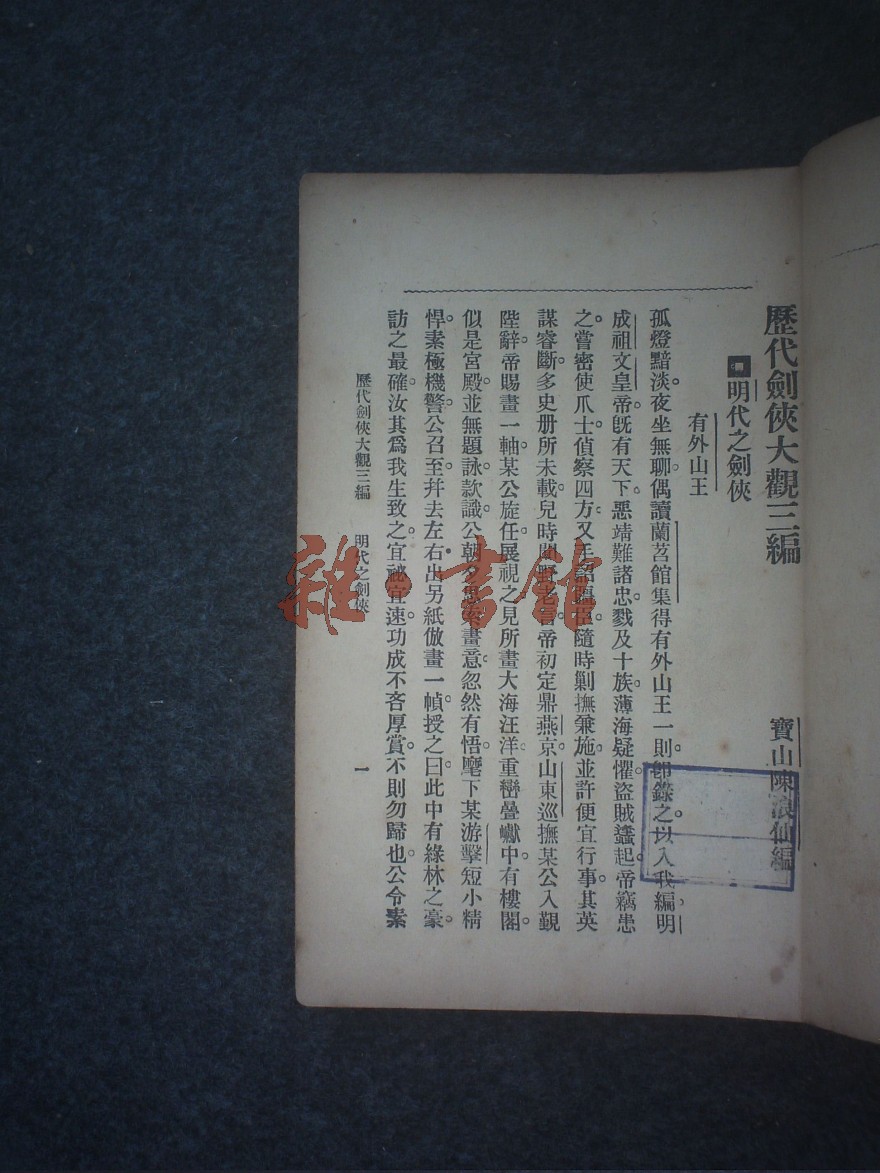 歷代劍俠大觀三編
寶山陳浪仙編
明代之劍俠
有外山王
孤燈黯淡。夜坐無聊。偶讀蘭苕館集。得有外山王一則。卽錄之。以入我編。明
成祖文皇帝旣有天下。惡靖難諸忠。戮及十族。薄海疑懼。盜賊蠭起。帝竊患
之。嘗密使爪士偵察四方。又手詔疆臣。隨時剿撫兼施。並許便宜行事。其英
謀睿斷。多史册所未載。兒時聞野老言。帝初定鼎燕京。山東巡撫某公入覲
陛辭。帝賜畫一軸。某公旋任。展視之。見所畫大海汪洋。重巒疊巘。中有樓閣。
似是宮殿。並無題詠款識。公朝夕思索畫意。忽然有悟。麾下某游擊。短小精
悍。素極機警。公召至。幷去左右。出另紙倣畫一幀。授之曰。此中有綠林之豪。
訪之最確。汝其爲我生致之。宜祕宜速。功成不吝厚賞。不則勿歸也。公令素
歷代劍俠大觀三編　明代之劍俠　一
雜·書館